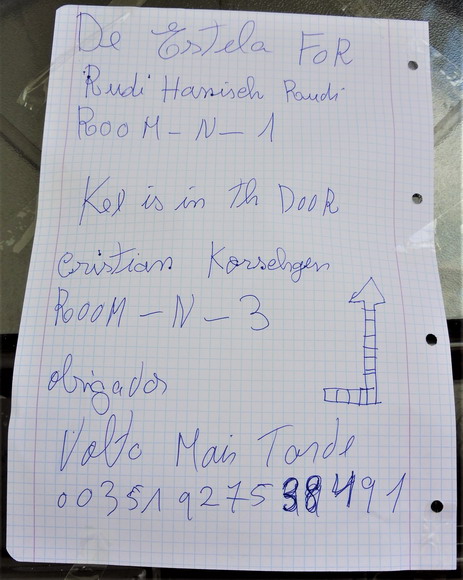 De Estela FoR
Rudi Hanisch Raudi
ROOM-N-1
Kel is in th DOOR
Cristian Korschgen
ROOM-N-3
obrigados
Volto Mais Tarde
00351927538491